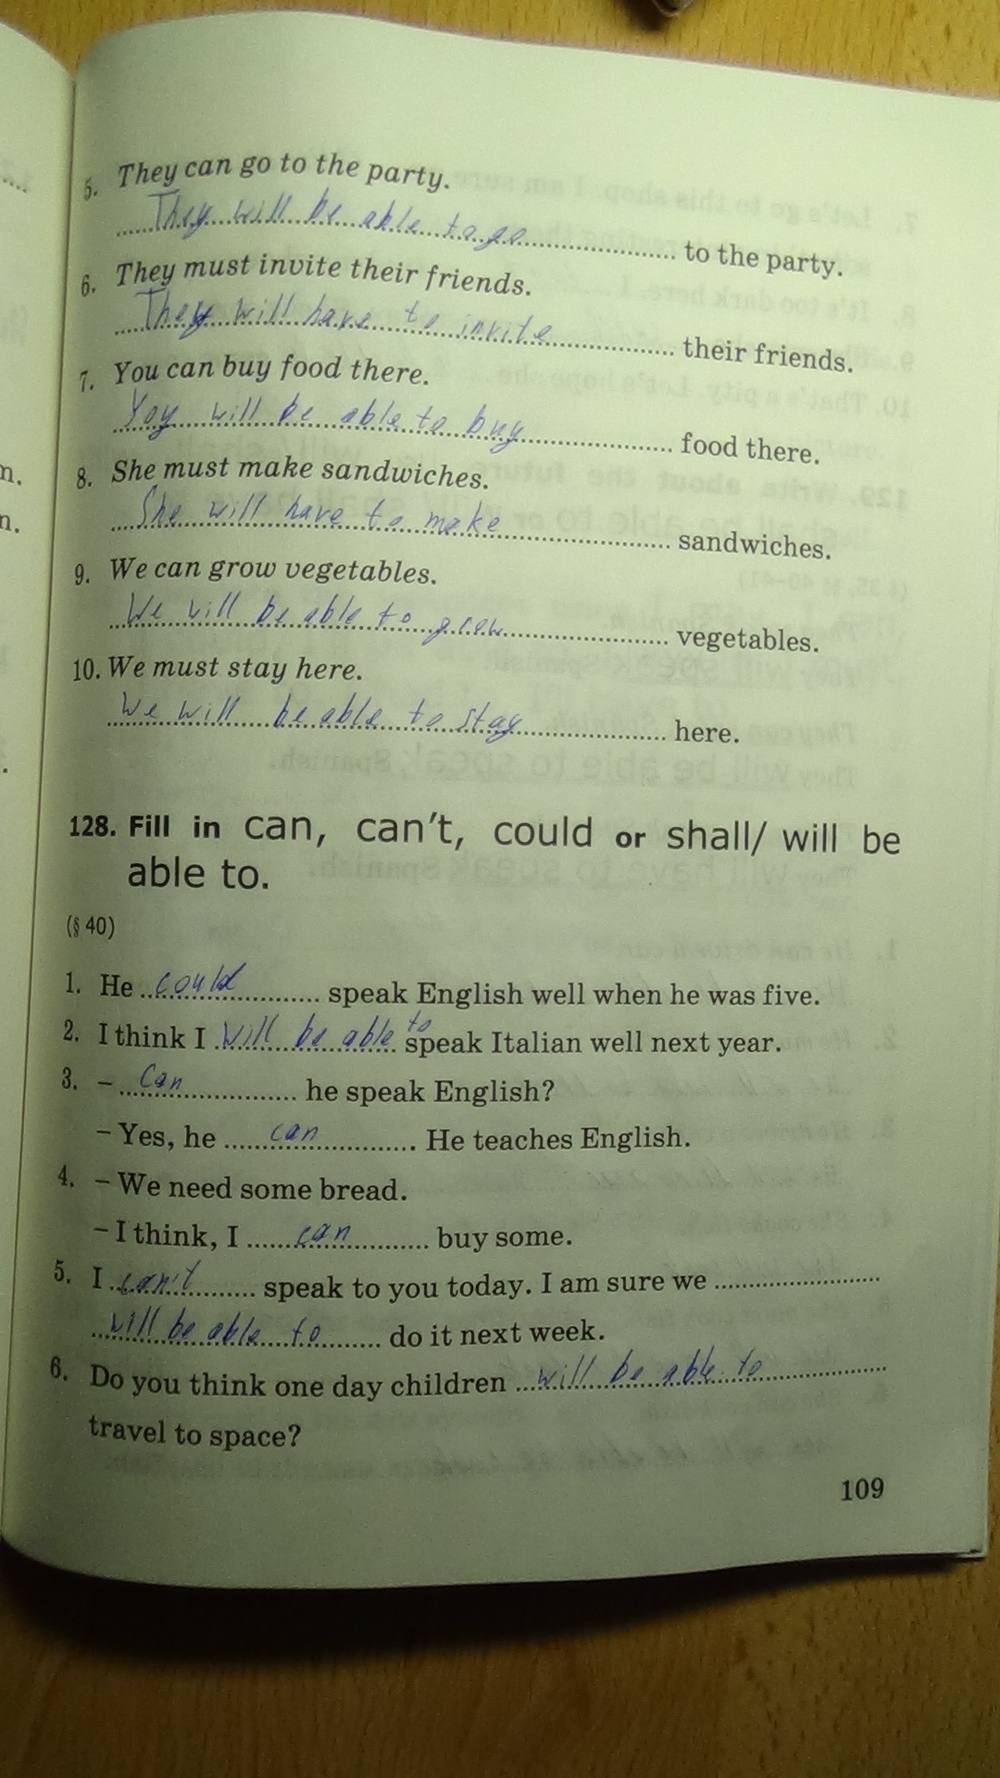 5. They can go to the party.
They will be able to go to the party.
6. They must invite their friends.
They will have to invite their friends.
7. You can buy food there.
Yoy will be able to buy food there.
8. She must make sandwiches.
She will have to make sandwiches.
9. We can grow vegetables.
We will be able to grow vegetables.
10. We must stay here.
We will be able to stay here.
128. Fill in can, can't, could or shall/ will be
able to.
(§ 40)
1. He could speak English well when he was five.
2. I think I will be able to speak Italian well next year.
3. – Can he speak English?
– Yes, he can. He teaches English.
4. – We need some bread.
– I think, I can buy some.
5. I can't speak to you today. I am sure we
will be able to do it next week.
6. Do you think one day children will be able to
travel to space?
109